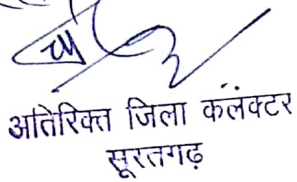 अतिरिक्त जिला कलंक्टर
सूरतगढ़